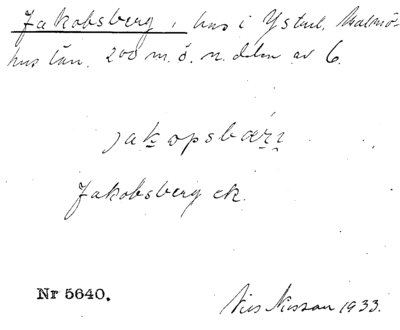 Jakobsberg, hus i Ystad, Malmö-
hus län. 200 m. ö. n. delen av 6.
jakopsbærj
Jakobsberg ek.
Nr 5640.
Nils Nilsson 1933.